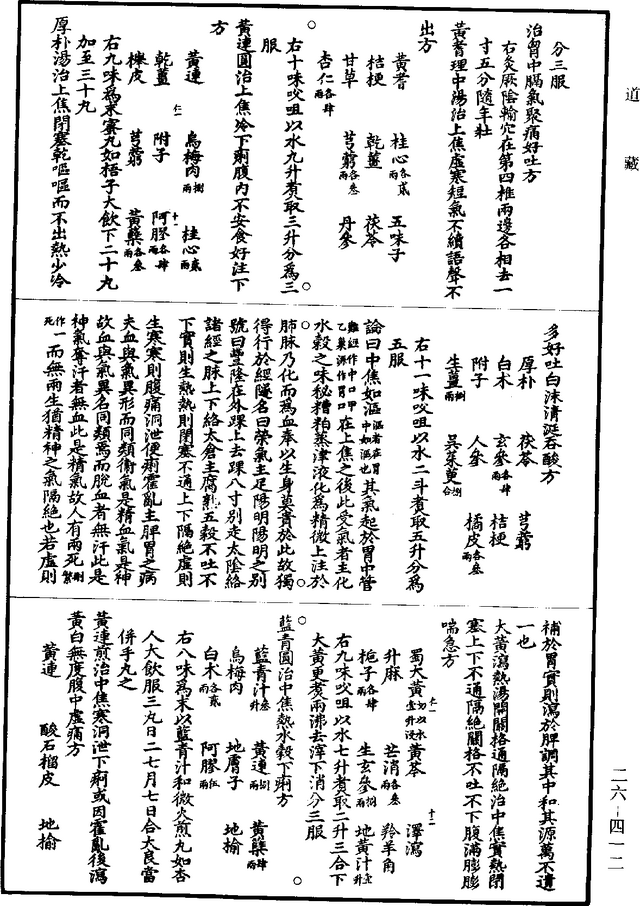 道藏
分三服
治胃中膈氣聚痛好吐方
右灸厥陰輸穴在第四椎兩邊各相去一
寸五分隨年壯
黃耆理中湯治上焦虛寒短氣不續語聲不
出方
黃耆 桂心各貳兩 五味子
桔梗 乾薑 茯苓
甘草 芎藭各叁兩 丹參
杏仁各肆兩
右十味㕮咀以水九升煮取三升分為三
服
黃連圓治上焦冷下痢腹內不安食好注下
方
黃連 烏梅肉捌兩 桂心貳兩
乾薑 附子 阿膠各肆兩
櫸皮 芎藭 黃蘗各叁兩
右九味為末蜜丸如梧子大飲下二十丸
加至三十丸
厚朴湯治上焦閉塞乾嘔嘔而不出熱少冷
多好吐白沫清涎吞酸方
厚朴 茯苓 芎藭
白术 玄參各肆兩 桔梗
附子 人參 橘皮各叁兩
生薑捌兩 吳茱萸捌合
右十一味㕮咀以水二斗煮取五升分為
五服
論曰中焦如漚漚者在胃中如漚也其氣起於胃中管
難經作中口甲乙巢源作胃口在上焦之後此受氣者主化
水穀之味秘糟粕蒸津液化為精微上注於
肺脉乃化而為血奉以生身莫貴於此故獨
得行於經隧名曰榮氣主足陽明陽明之別
號曰豐隆在外踝上去踝八寸別走太陰絡
諸經之脉上下絡太倉主腐熟五穀不吐不
下實則生熱熱則閉塞不通上下隔絕虛則
生寒寒則腹痛洞泄便痢霍亂主脾胃之病
夫血與氣異形而同類衛氣是精血氣是神
故血與氣異名同類焉而脫血者無汗此是
神氣奪汗者無血此是精氣故人有兩死
而無兩生猶精神之氣隔絕也若虛則
補於胃實則瀉於脾調其中和其源萬不遺
一也
大黃瀉熱湯開關格通隔絕治中焦實熱閉
塞上下不通隔絕關格不吐不下腹滿膨膨
喘急方
蜀大黃切以水壹升浸 黃芩 澤瀉
升麻 芒消各叁兩 羚羊角
梔子各肆兩 生玄參捌兩 地黃汁壹升
右九味㕮咀以水七升煮取二升三合下
大黃更煮兩沸去滓下消分三服
藍青圓治中焦熱水穀下痢方
藍青汁叁升 黃連捌兩 黃蘗肆兩
烏梅肉 地膚子 地榆
白术各貳兩 阿膠伍兩
右八味為末以藍青汁和微火煎丸如杏
人大飲服三丸日二七月七日合大良當
併手丸之
黃連煎治中焦寒洞泄下痢或因霍亂後瀉
黃白無度腹中虛痛方
黃連 酸石榴皮 地榆
二六-四一二